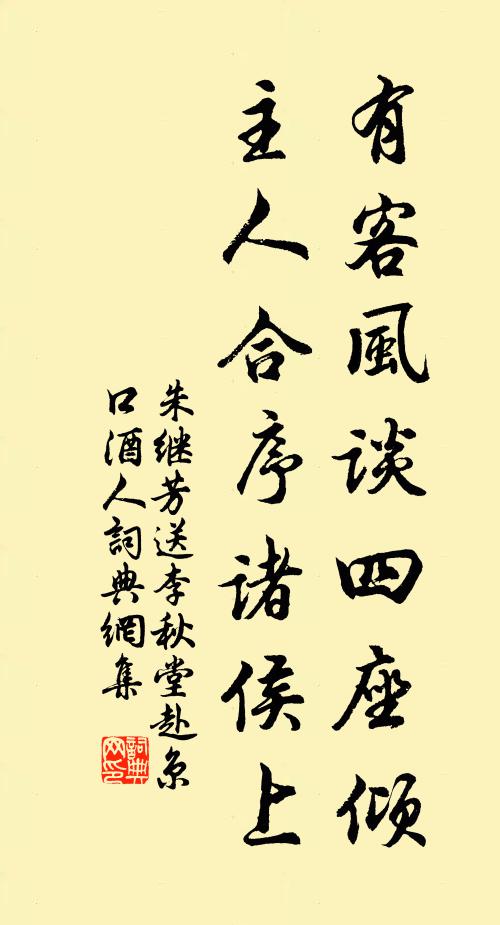 有客風談四座傾
主人合序諸侯上
朱继芳送李秋堂赴京
口酒人詞典網集
詞典網印